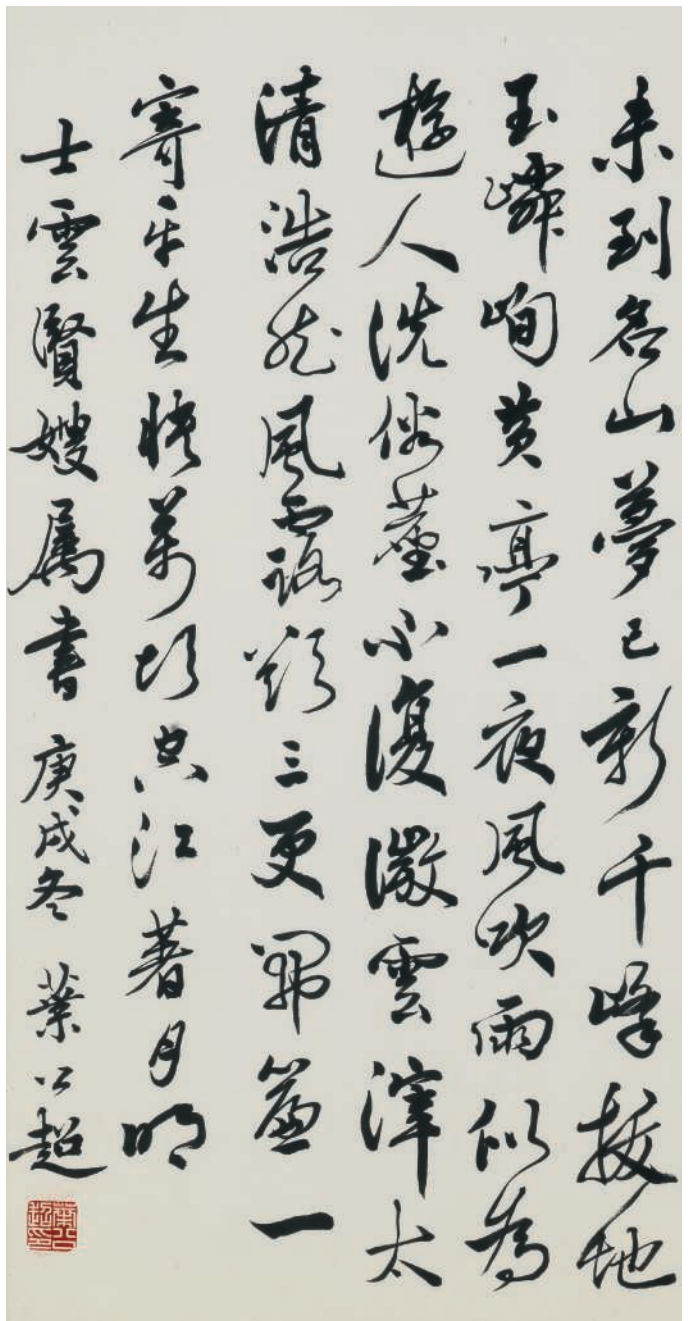 未到名山夢已新千峰拔地
玉嶙峋黃亭一夜風吹雨似為
遊人洗俗塵不復微雲滓太
清浩然風露欲三更開簾一
寄平生快萬頃空江著月明
士雲賢嫂屬書 庚戌冬 葉公超
葉公超印